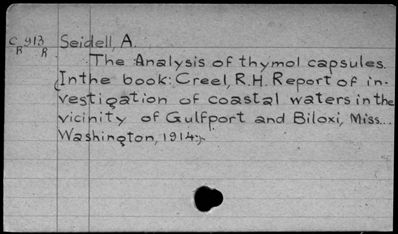 C 913 Seidell, A.
R R
The Analysis of thymol capsules.
(Inthe book: Creel, R.H. Report of in-
vestigation of coastal waters in the
vicinity of Gulfport and Biloxi, Miss...
Washington, 1914.).